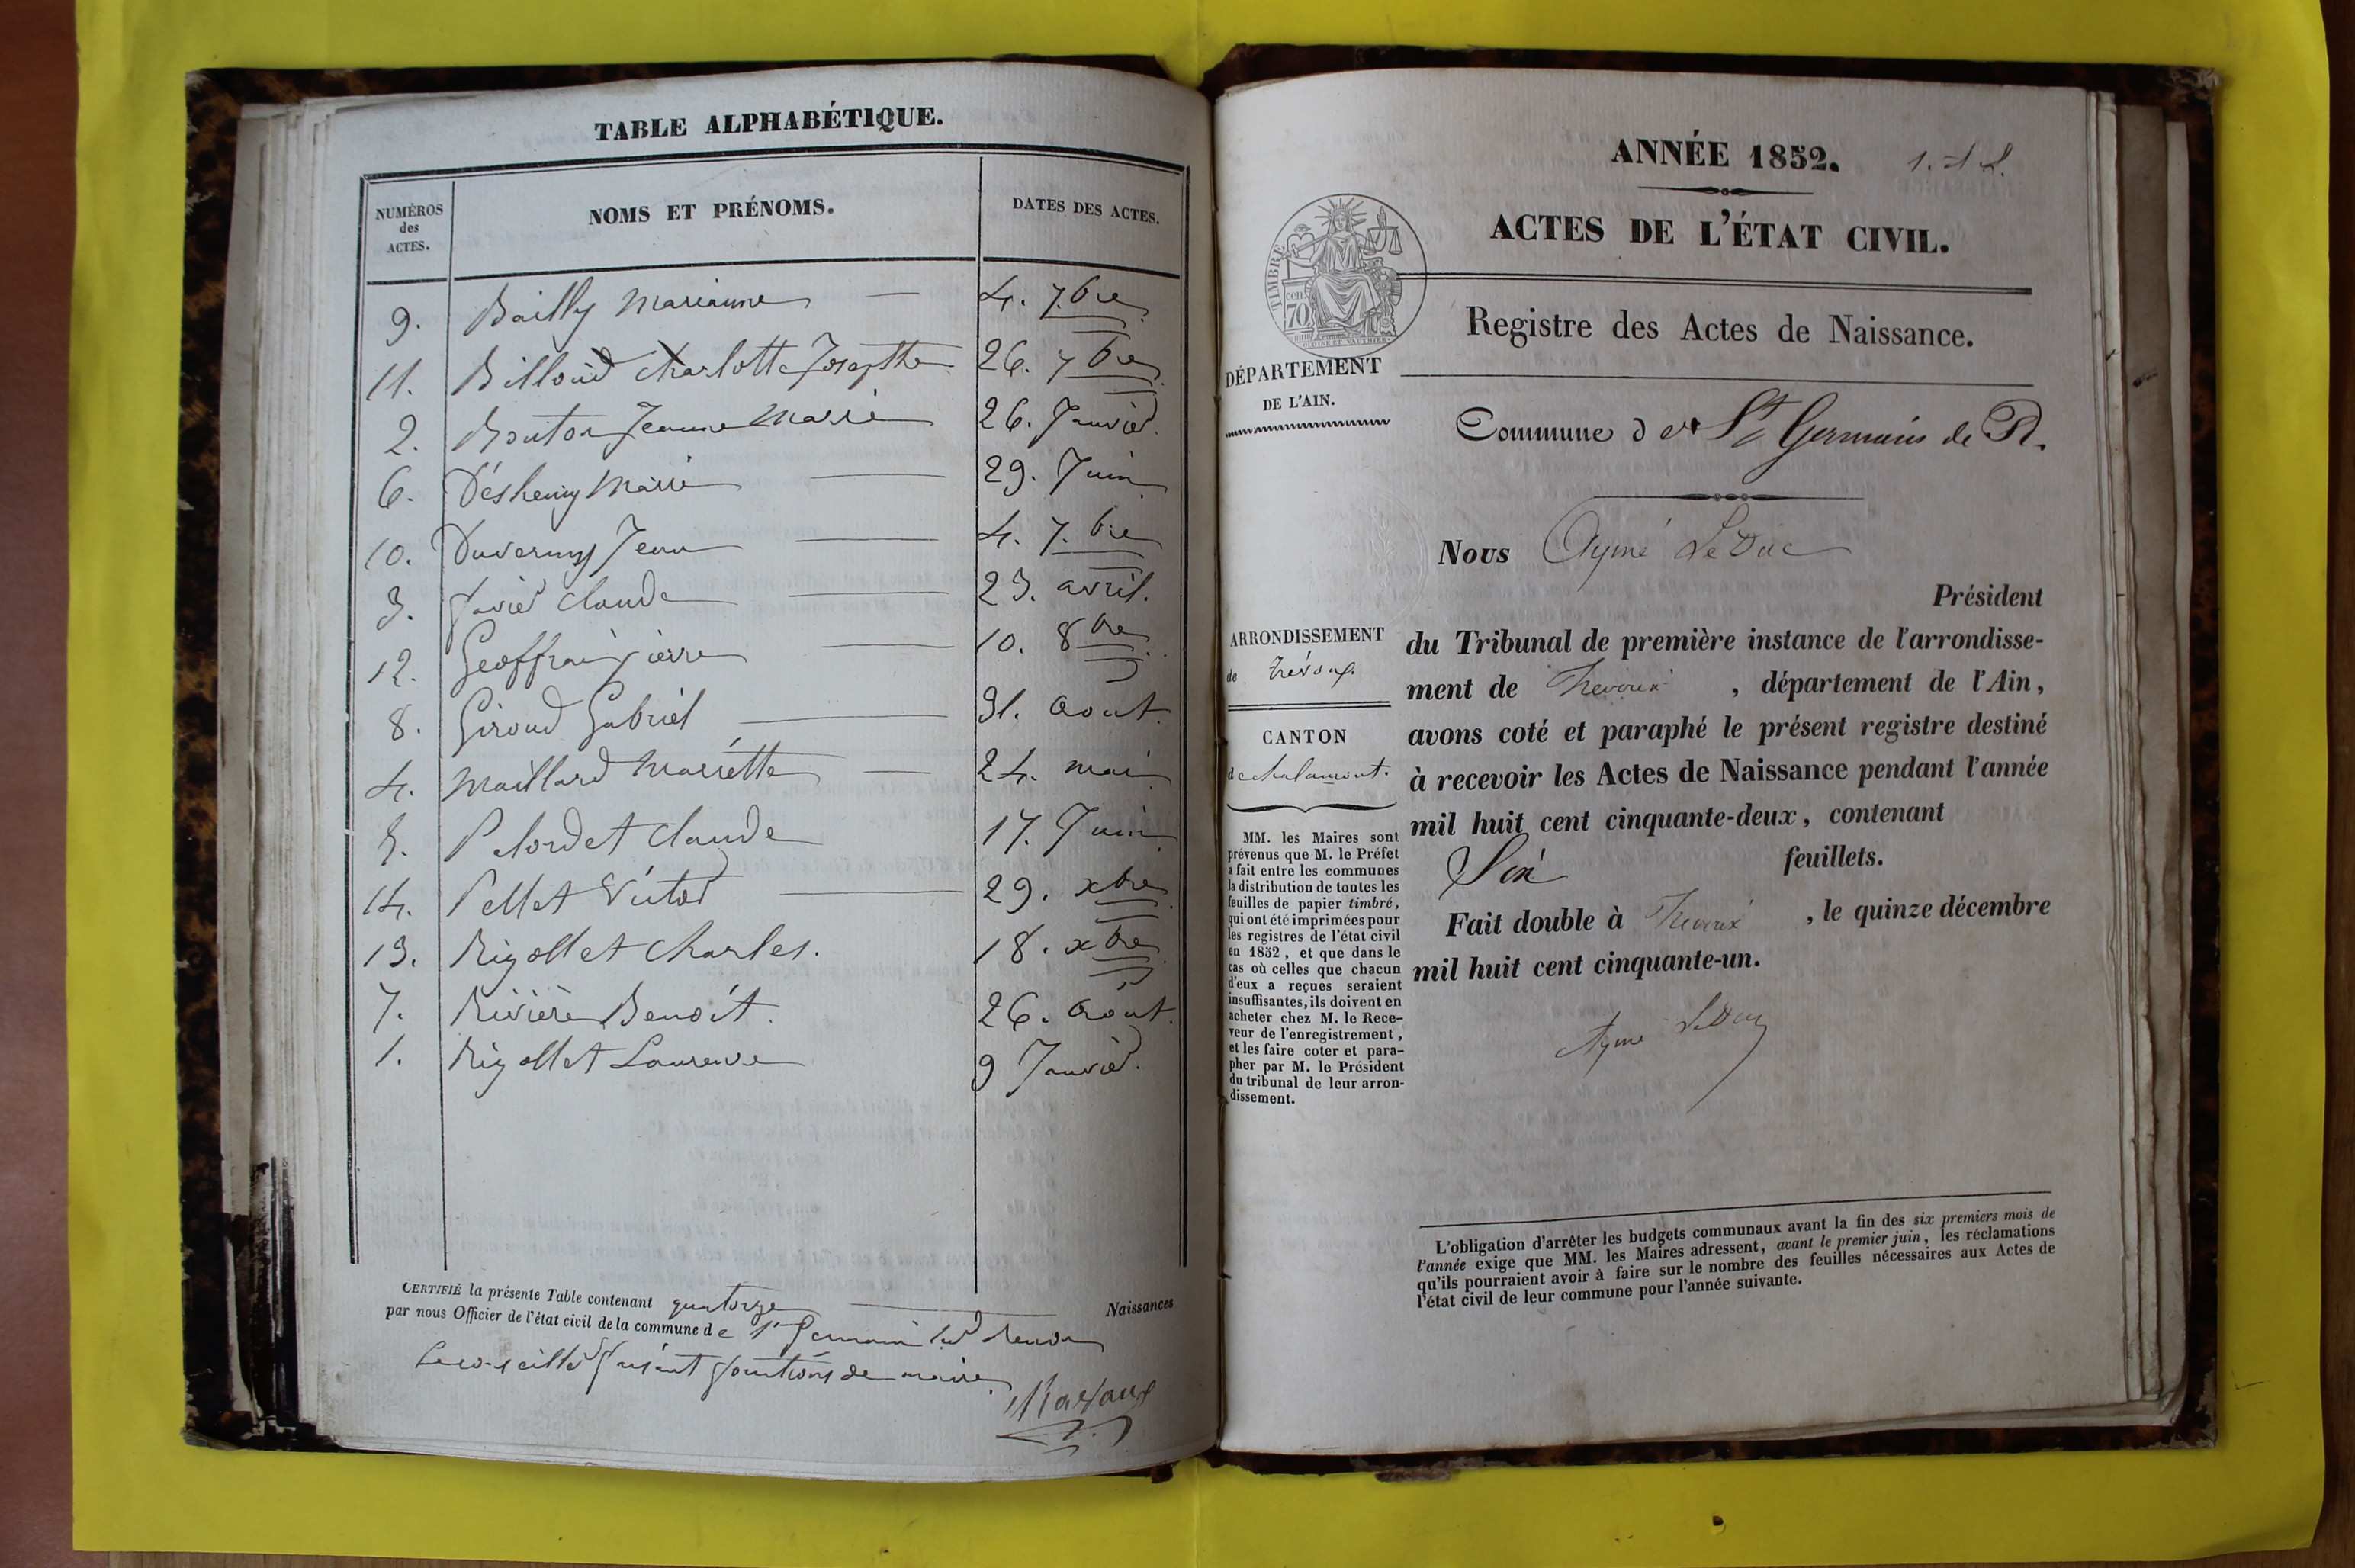 TABLE ALPHABÉTIQUE.
NUMÉROS des ACTES. NOMS ET PRÉNOMS. DATES DES ACTES.
9. Bailly Marianne — 4. 7.bre
11. Billoud Charlotte Josephte 26. 7bre
2. Bouton Jeanne Marie 26. Janvier.
6. Déshenry Marie — 29. Juin
10. Duvernay Jean — 4. 7.bre
3. Favier Claude — 23. avril.
12. Geoffrai pierre — 10. 8bre
8. Giroud Gabriel — 31. aout.
4. Maillard Mariette — 24. mai
5. Pelordet Claude 17. Juin
14. Pellet Victor — 29. xbre
13. Rigollet Charles. 18. xbre
7. Rivière Benoit. 26. Août.
1. Rigollet Laurence 9 Janvier.
CERTIFIÉ la présente Table contenant quatorze — Naissances
par nous Officier de l'état civil de la commune de St Germain sur Renon
Le conseiller faisant fonctions de maire
ANNÉE 1852.
ACTES DE L'ÉTAT CIVIL.
TIMBRE
cen. 70
Registre des Actes de Naissance.
DÉPARTEMENT
DE L'AIN.
Commune de St Germain de R.
Nous Aymé LeDuc
Président
ARRONDISSEMENT
de Trévoux.
du Tribunal de première instance de l'arrondisse-
ment de Trevoux , département de l'Ain,
avons coté et paraphé le présent registre destiné
à recevoir les Actes de Naissance pendant l'année
mil huit cent cinquante-deux, contenant
Six feuillets.
Fait double à Trevoux , le quinze décembre
mil huit cent cinquante-un.
Aymé LeDuc
CANTON
de chalamont.
MM. les Maires sont
prévenus que M. le Préfet
a fait entre les communes
la distribution de toutes les
feuilles de papier timbré,
qui ont été imprimées pour
les registres de l'état civil
en 1852, et que dans le
cas où celles que chacun
d'eux a reçues seraient
insuffisantes, ils doivent en
acheter chez M. le Rece-
veur de l'enregistrement,
et les faire coter et para-
pher par M. le Président
du tribunal de leur arron-
dissement.
L'obligation d'arrêter les budgets communaux avant la fin des six premiers mois de
l'année exige que MM. les Maires adressent, avant le premier juin, les réclamations
qu'ils pourraient avoir à faire sur le nombre des feuilles nécessaires aux Actes de
l'état civil de leur commune pour l'année suivante.